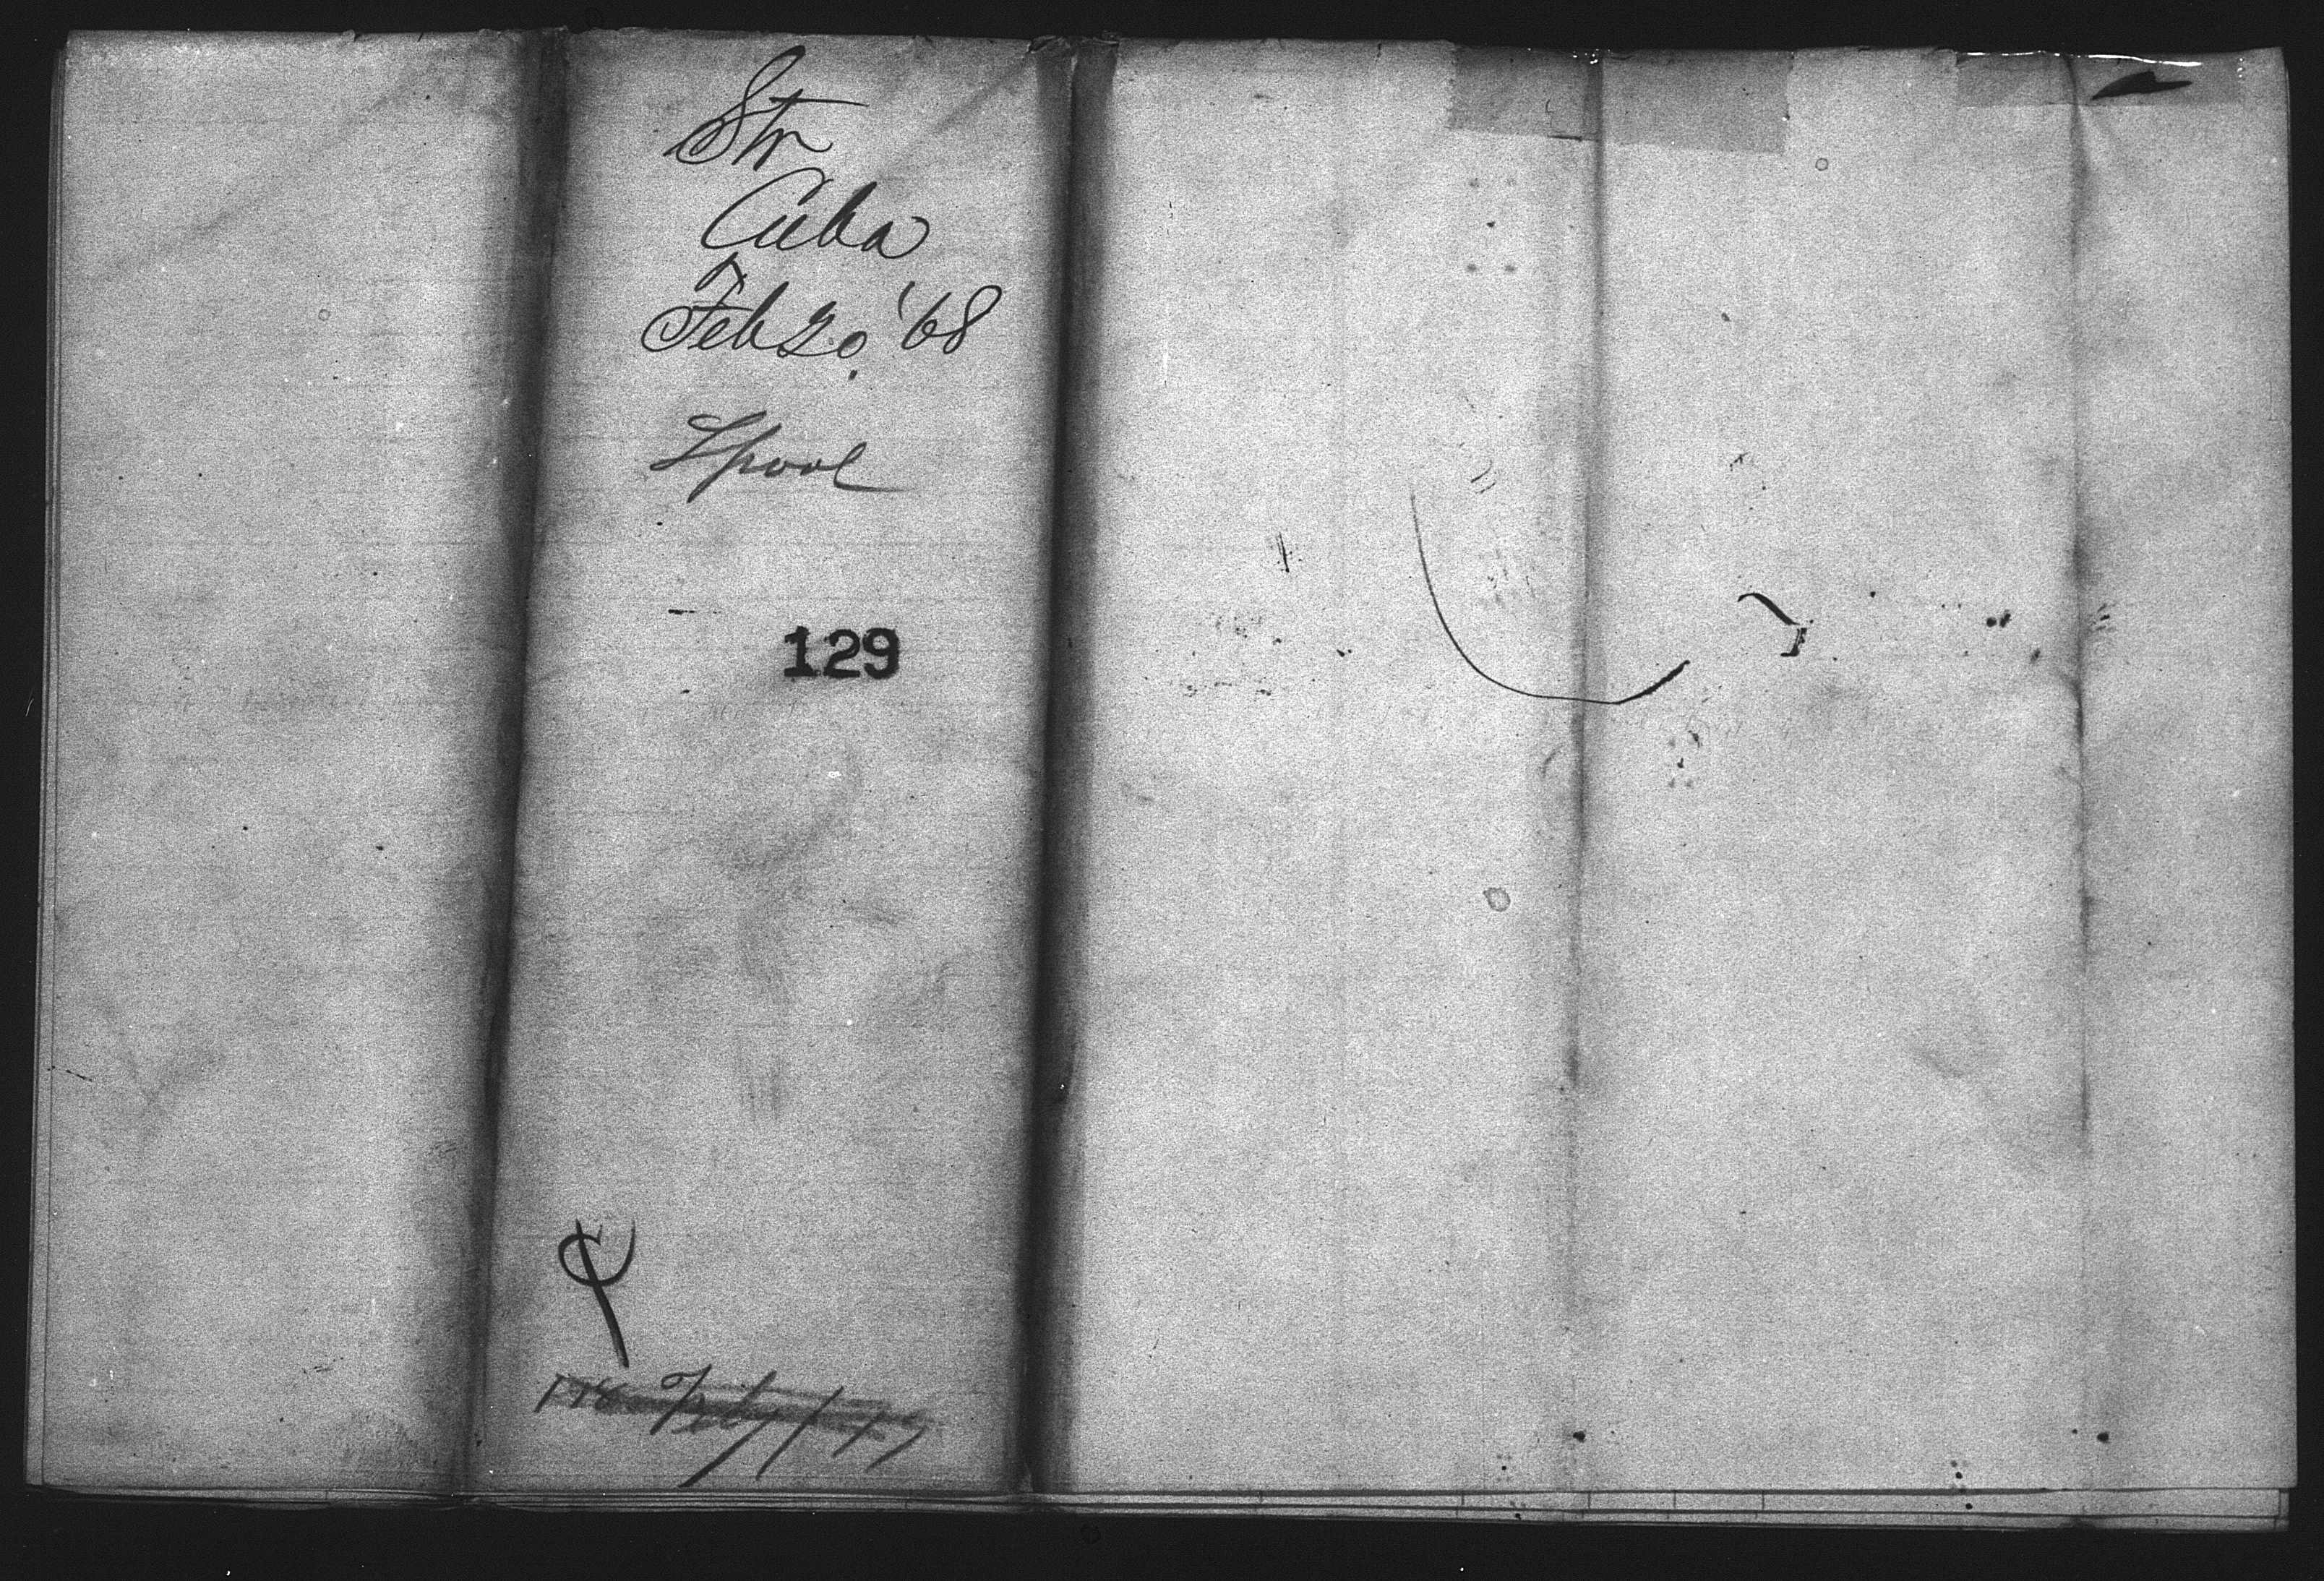 Str
Cuba
Feb 20 '68
Lpool
129